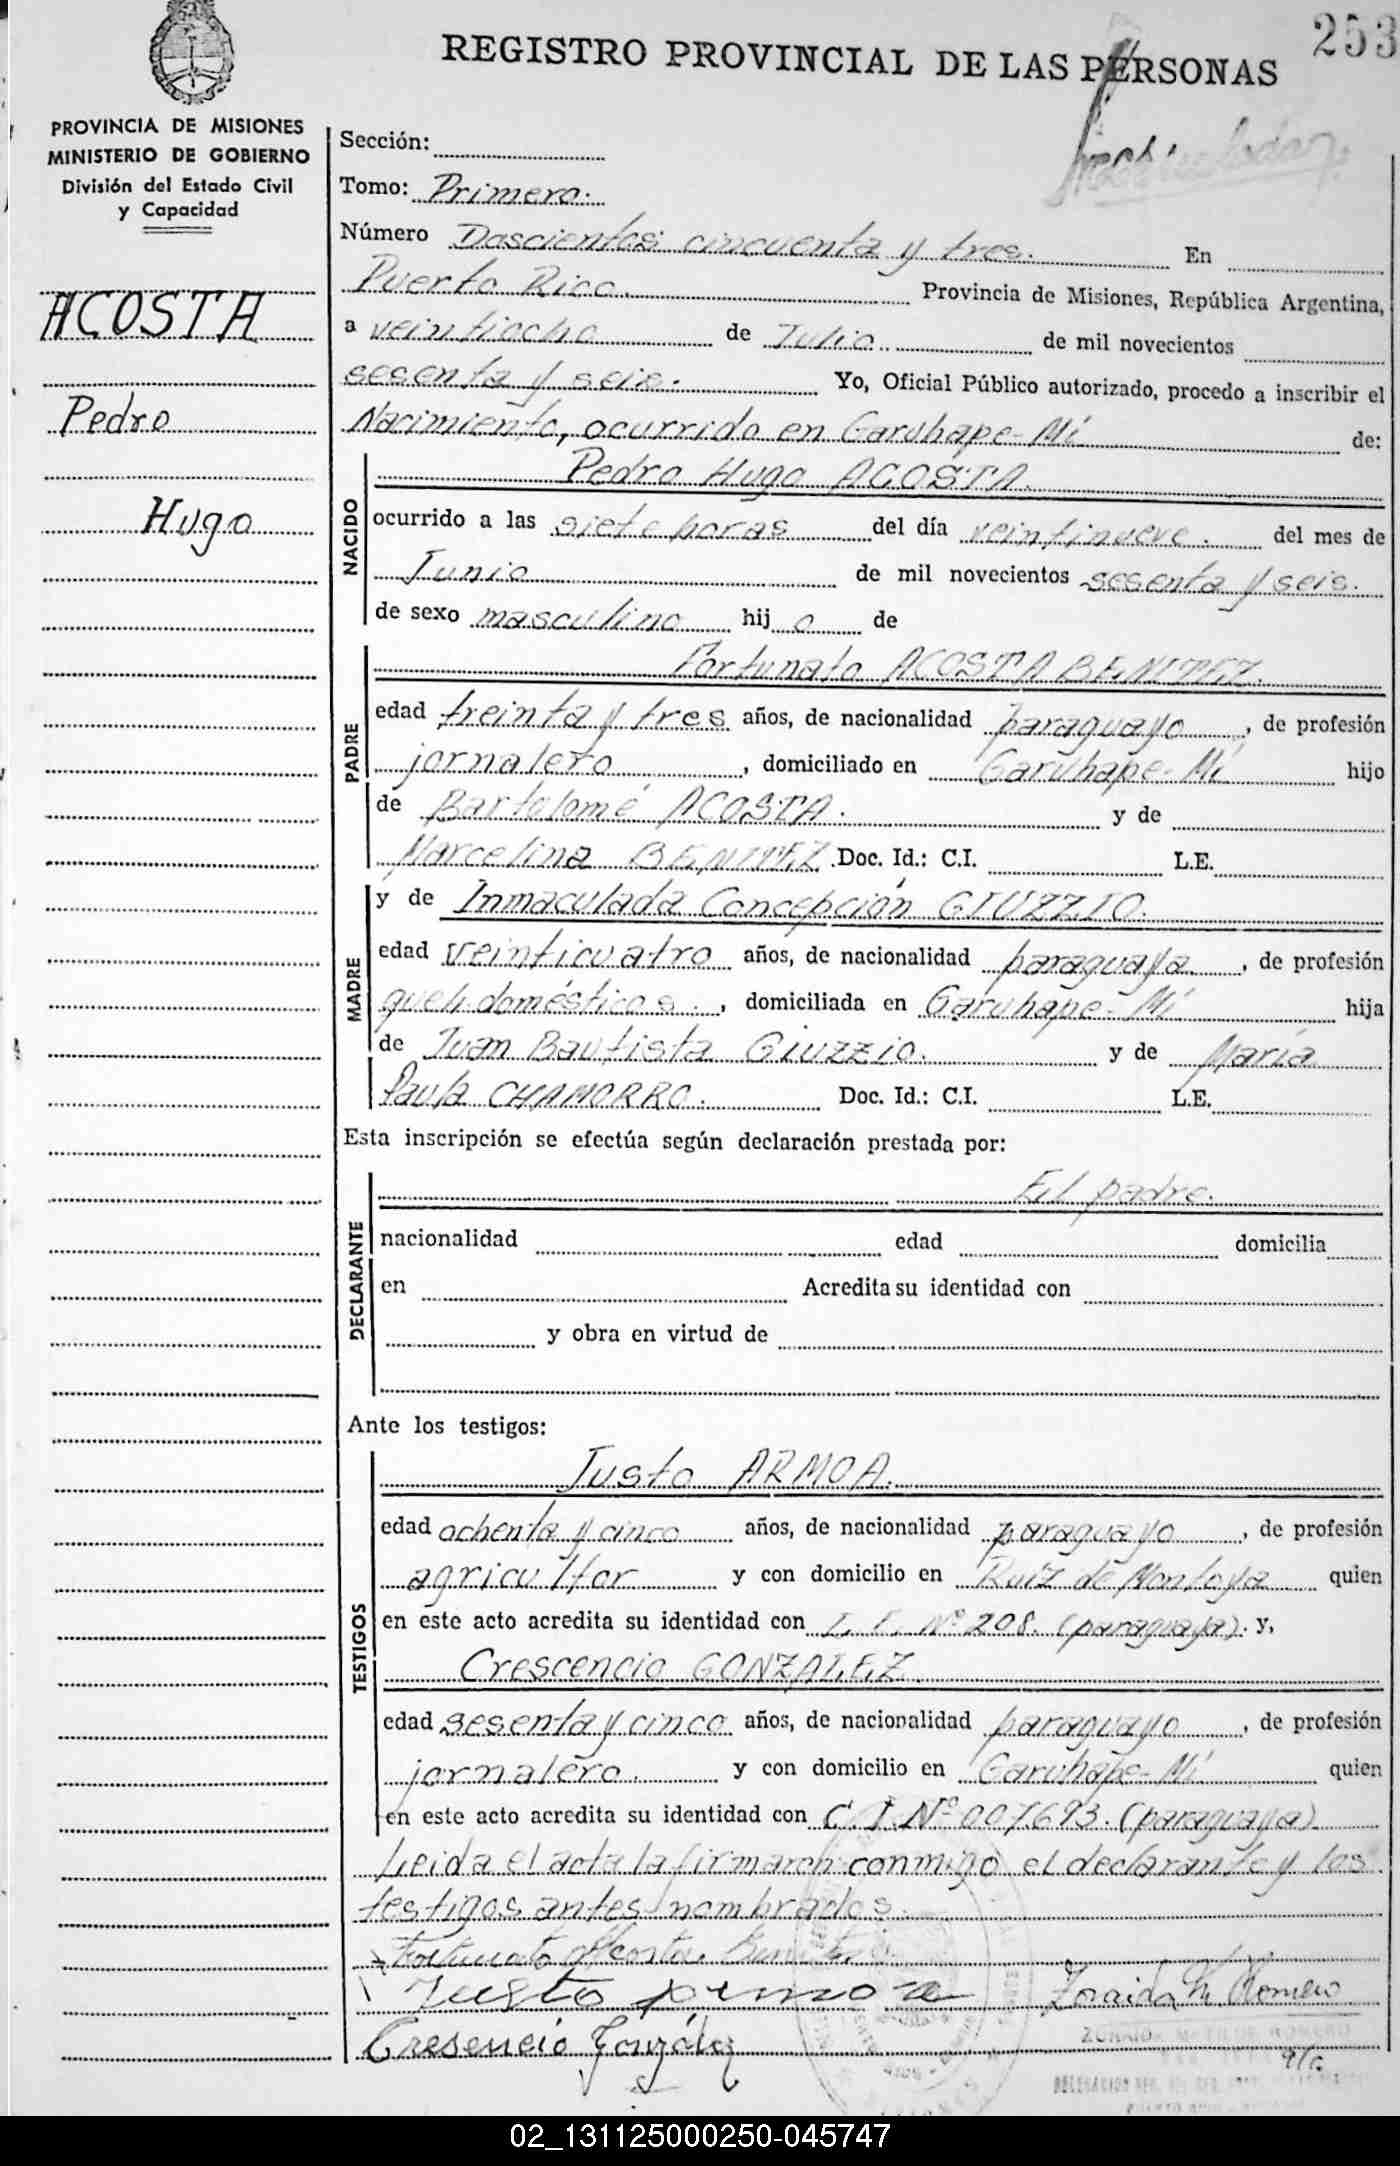 253
REGISTRO PROVINCIAL DE LAS PERSONAS
PROVINCIA DE MISIONES
MINISTERIO DE GOBIERNO
División del Estado Civil
y Capacidad
ACOSTA
Pedro
Hugo
Sección:
Tomo: Primero.
Número Doscientos cincuenta y tres. En
Puerto Rico. Provincia de Misiones, República Argentina,
a veintiocho de Julio de mil novecientos
sesenta y seis. Yo, Oficial Público autorizado, procedo a inscribir el
Nacimiento, ocurrido en Garuhape-Mí de:
NACIDO
Pedro Hugo ACOSTA.
ocurrido a las siete horas del día veintinueve. del mes de
Junio de mil novecientos sesenta y seis.
de sexo masculino hijo de
PADRE
Fortunato ACOSTA BENITEZ.
edad treinta y tres años, de nacionalidad paraguayo, de profesión
jornalero, domiciliado en Garuhape-Mí hijo
de Bartolomé ACOSTA. y de
Marcelina BENITEZ. Doc. Id.: C.I. L.E.
MADRE
y de Inmaculada Concepción GIUZZIO.
edad veinticuatro años, de nacionalidad paraguaya, de profesión
queh. domésticos., domiciliada en Garuhape-Mí hija
de Juan Bautista Giuzzio. y de María
Paula CHAMORRO. Doc. Id.: C.I. L.E.
Esta inscripción se efectúa según declaración prestada por:
DECLARANTE
El padre.
nacionalidad edad domicilia
en Acredita su identidad con
y obra en virtud de
Ante los testigos:
TESTIGOS
Justo ARMOA.
edad ochenta y cinco años, de nacionalidad paraguayo, de profesión
agricultor y con domicilio en Ruiz de Montoya quien
en este acto acredita su identidad con Nº 208. (paraguaya). y,
Crescencio GONZALEZ
edad sesenta y cinco años, de nacionalidad paraguayo, de profesión
jornalero. y con domicilio en Garuhape-Mí quien
en este acto acredita su identidad con C.I. Nº 007.693. (paraguaya)
Leida el acta la firmaron conmigo el declarante y los
testigos antes nombrados.
Fortunato Acosta
Justo Armoa
Zoraida M. Romero
Cresencio González
ZORAIDA MATILDE ROMERO
a/c.
02_131125000250-045747